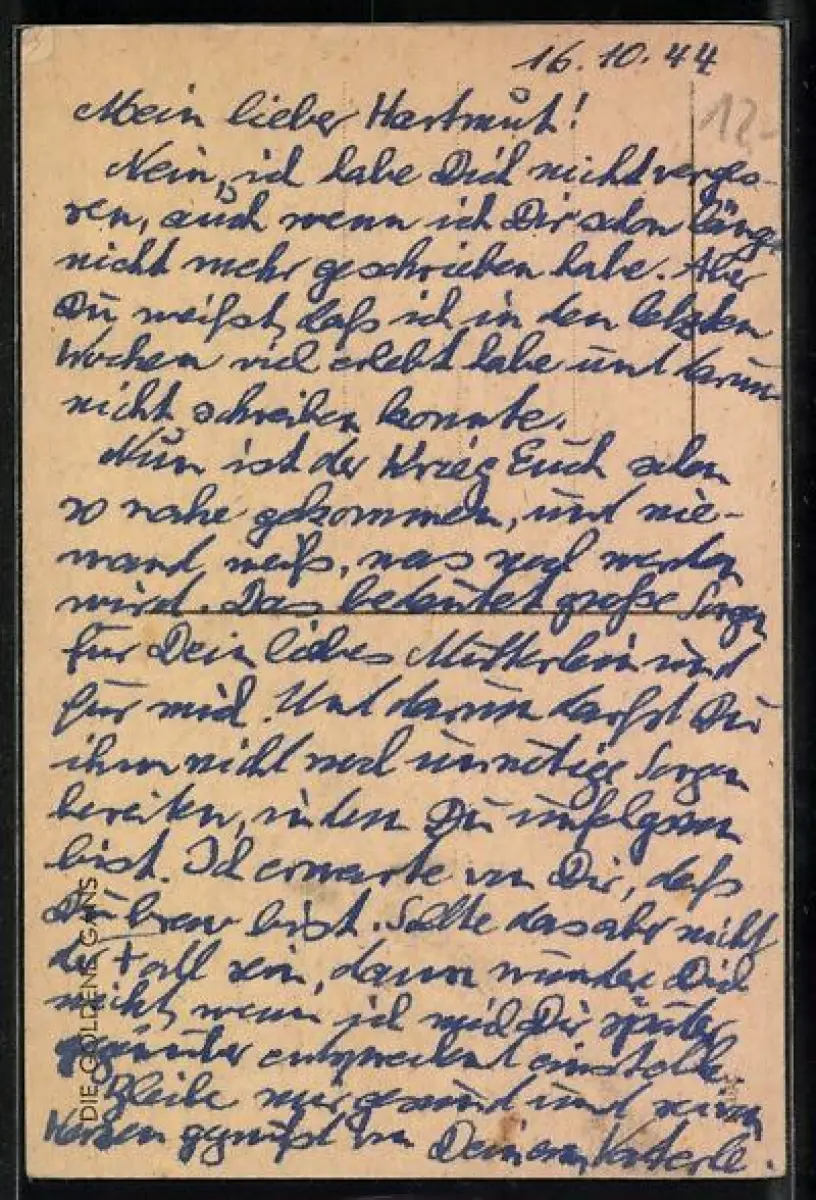 16.10.44
12.-
Mein lieber Hartmut!
Nein, ich habe Dich nicht verges-
sen, auch wenn ich Dir schon länger
nicht mehr geschrieben habe. Aber
Du weißt, daß ich in den letzten
Wochen viel erlebt habe und darum
nicht schreiben konnte.
Nun ist der Krieg Euch schon
so nahe gekommen, und nie-
mand weiß, was noch werden
wird. Das bedeutet große Sorgen
für Dein liebes Mütterlein und
für mich. Und darum darfst Du
ihm nicht noch unnötige Sorgen
bereiten, indem Du unfolgsam
bist. Ich erwarte von Dir, daß
Du brav bist. Sollte das aber nicht
der Fall sein, dann wundere Dich
nicht, wenn ich mich Dir später
gegenüber entsprechend einstelle.
Bleibe nur gesund und sei von
Herzen gegrüßt von Deinem Vaterle.
DIE GOLDENE GANS